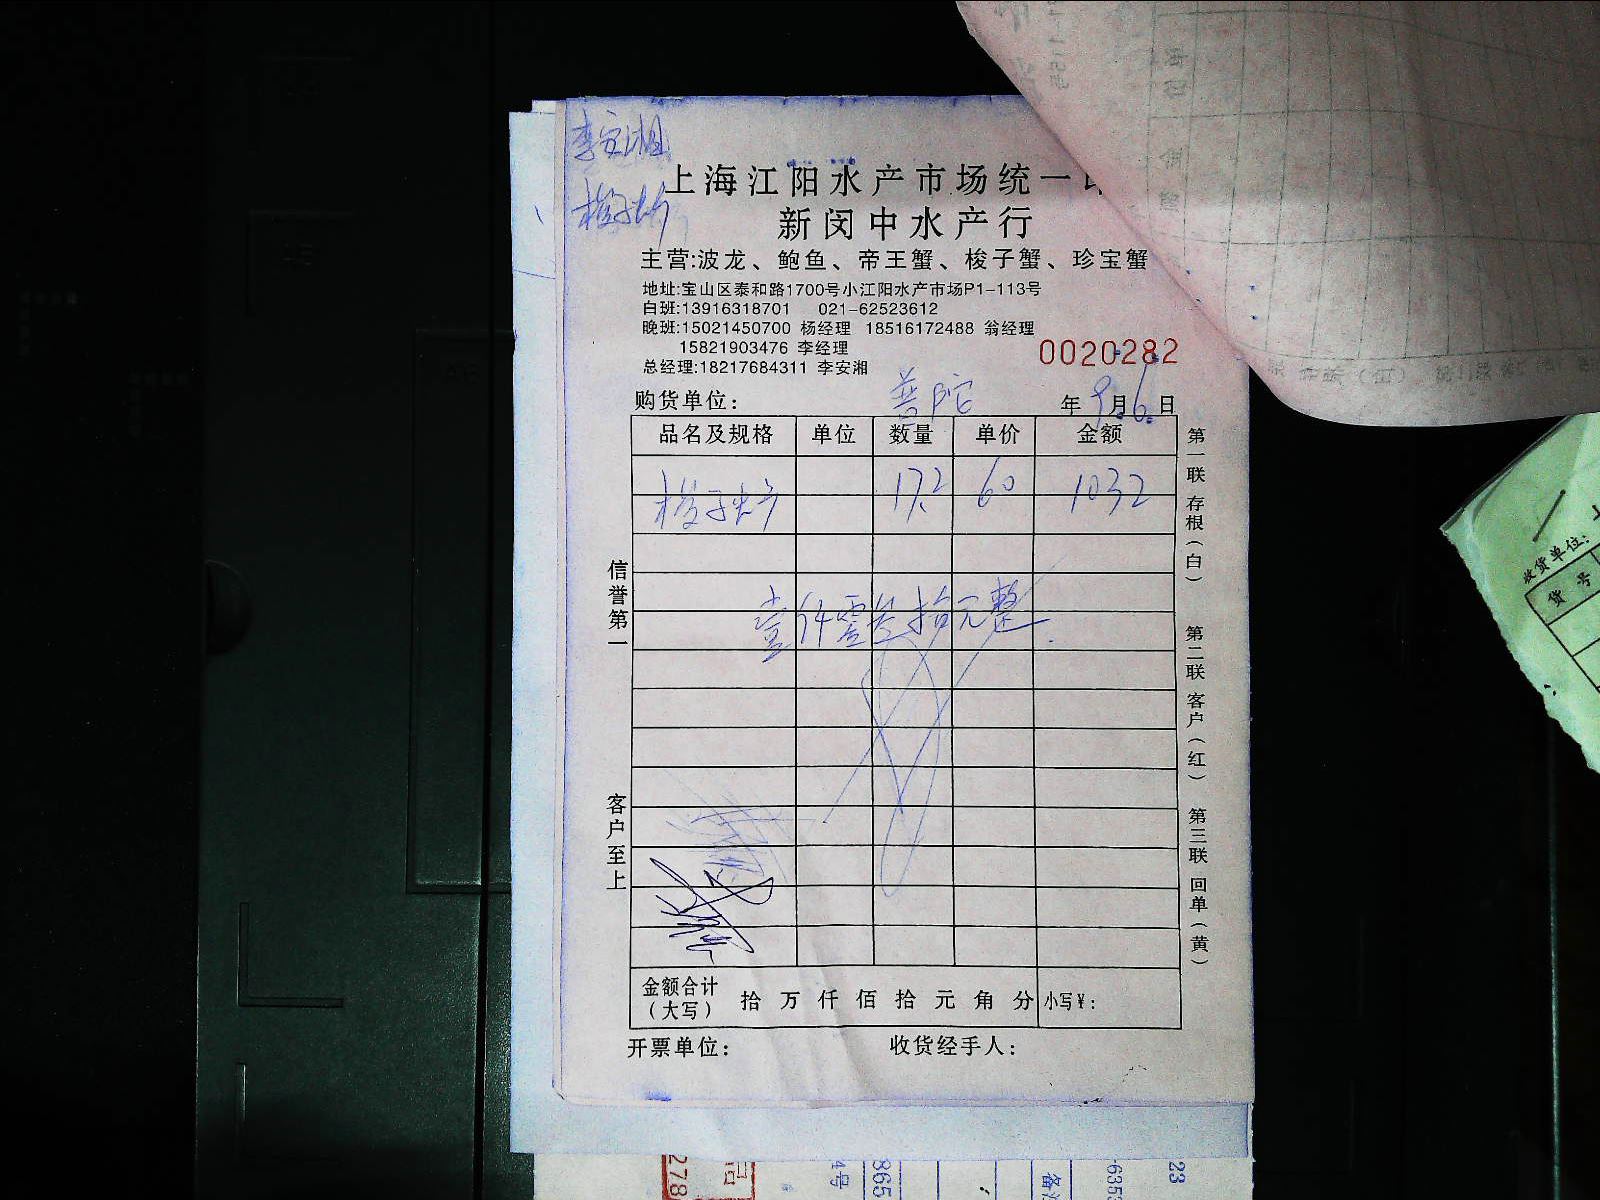 李安湘
梭子蟹
上海江阳水产市场统一
新闵中水产行
主营:波龙、鲍鱼、帝王蟹、梭子蟹、珍宝蟹
地址:宝山区泰和路1700号小江阳水产市场P1-113号
白班:13916318701 021-62523612
晚班:15021450700 杨经理 18516172488 翁经理
15821903476 李经理
总经理:18217684311 李安湘
0020282
购货单位: 普陀 年 9月 6日
品名及规格 单位 数量 单价 金额
梭子蟹 17.2 60 1032
壹仟零叁拾元整
金额合计(大写) 拾 万 仟 佰 拾 元 角 分 小写¥:
开票单位: 收货经手人:
信誉第一
客户至上
第一联 存根(白)
第二联 客户(红)
第三联 回单(黄)
收货单位:
货号
278
品
4号
365
备
635
23